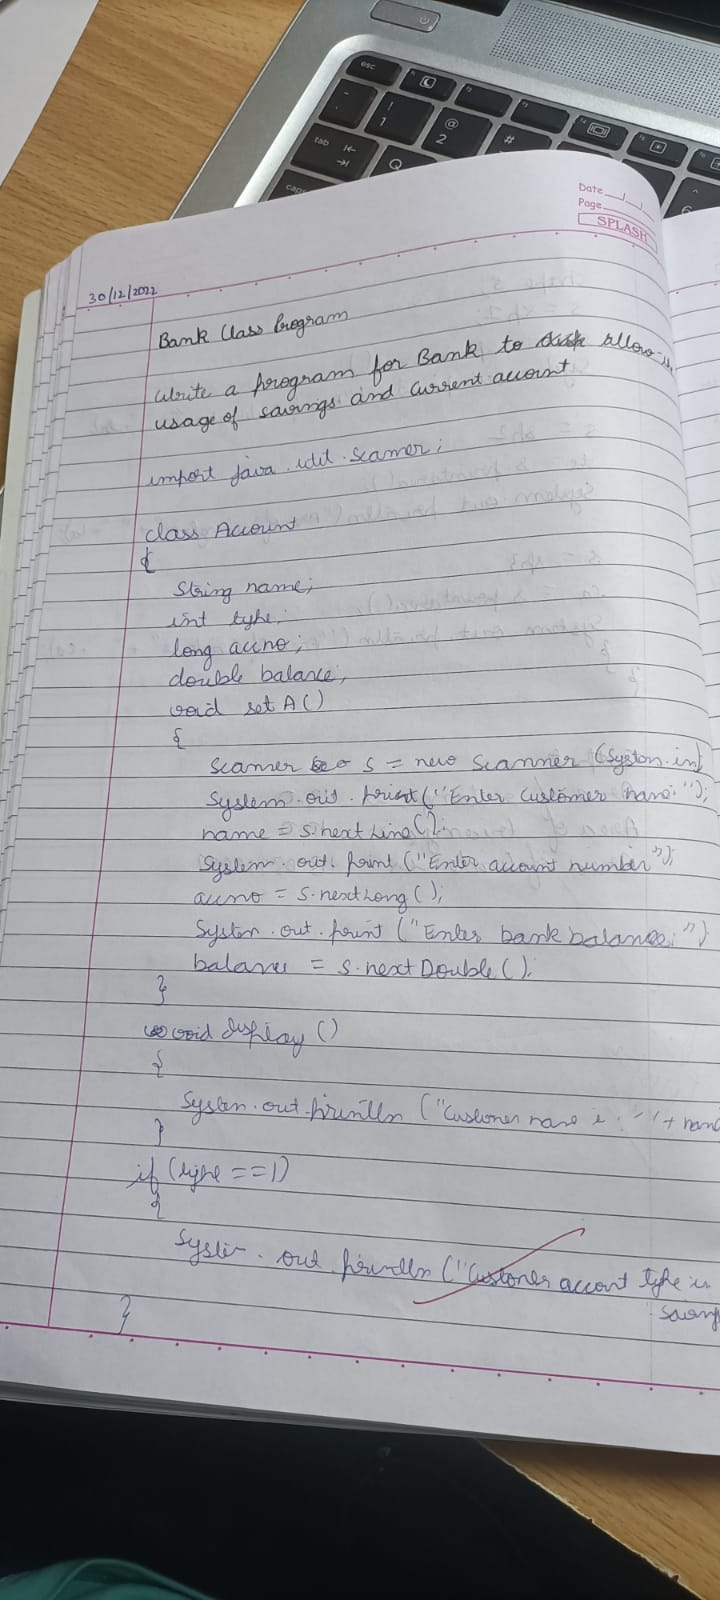 esc
!
1
@
2
#
tab
Q
caps
Date
Page
SPLASH
30/12/2022
Bank Class Program
Write a program for Bank to allow
usage of savings and current account
import java.util.Scanner;
class Account
{
String name;
int type;
long accno;
double balance;
void setA()
{
Scanner s = new Scanner (System.in)
System.out.print("Enter Customer name: ");
name = s.nextLine();
System.out.print ("Enter account number");
accno = s.nextLong();
System.out.print ("Enter bank balance: ")
balance = s.nextDouble();
}
void display()
{
System.out.println ("Customer name is: " + name
}
if (type ==1)
{
System.out.println ("Customer account type is
saving
}